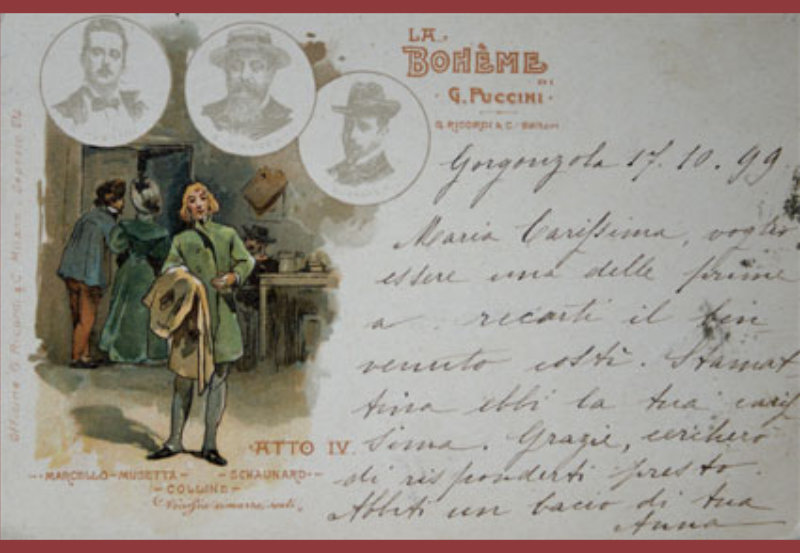 LA
BOHÈME
DI
G. PUCCINI
G. RICORDI & C. Editori
Gorgonzola 17.10.99
Maria Carissima, voglio
essere una delle prime
a recarti il ben
venuto costì. Stamat
tina ebbi la tua caris
sima. Grazie, cercherò
di risponderti presto.
Abbiti un bacio di tua
Anna
ATTO IV.
MARCELLO - MUSETTA - SCHAUNARD
COLLINE
Vecchia zimarra, senti,
Officine G. Ricordi & C. Milano